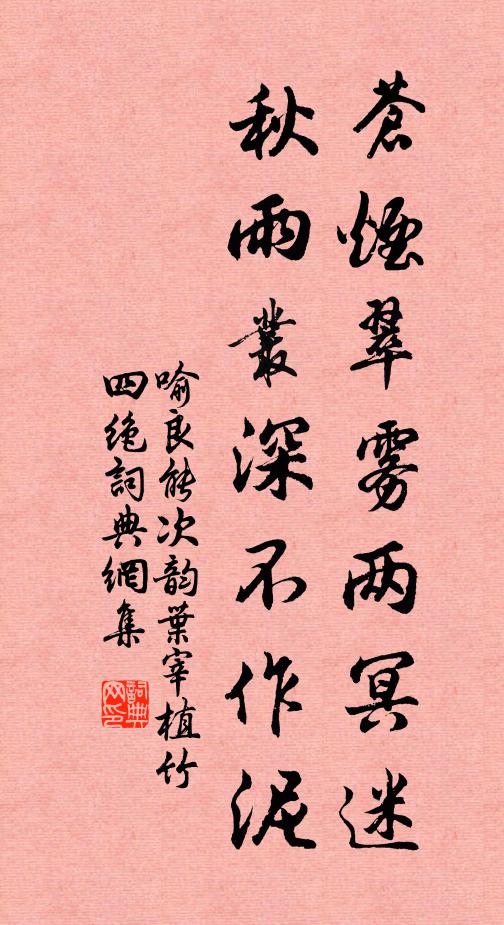 蒼煙翠雾两冥迷
秋雨叢深不作泥
喻良能次韵葉宰植竹
四绝詞典網集
詞典网印